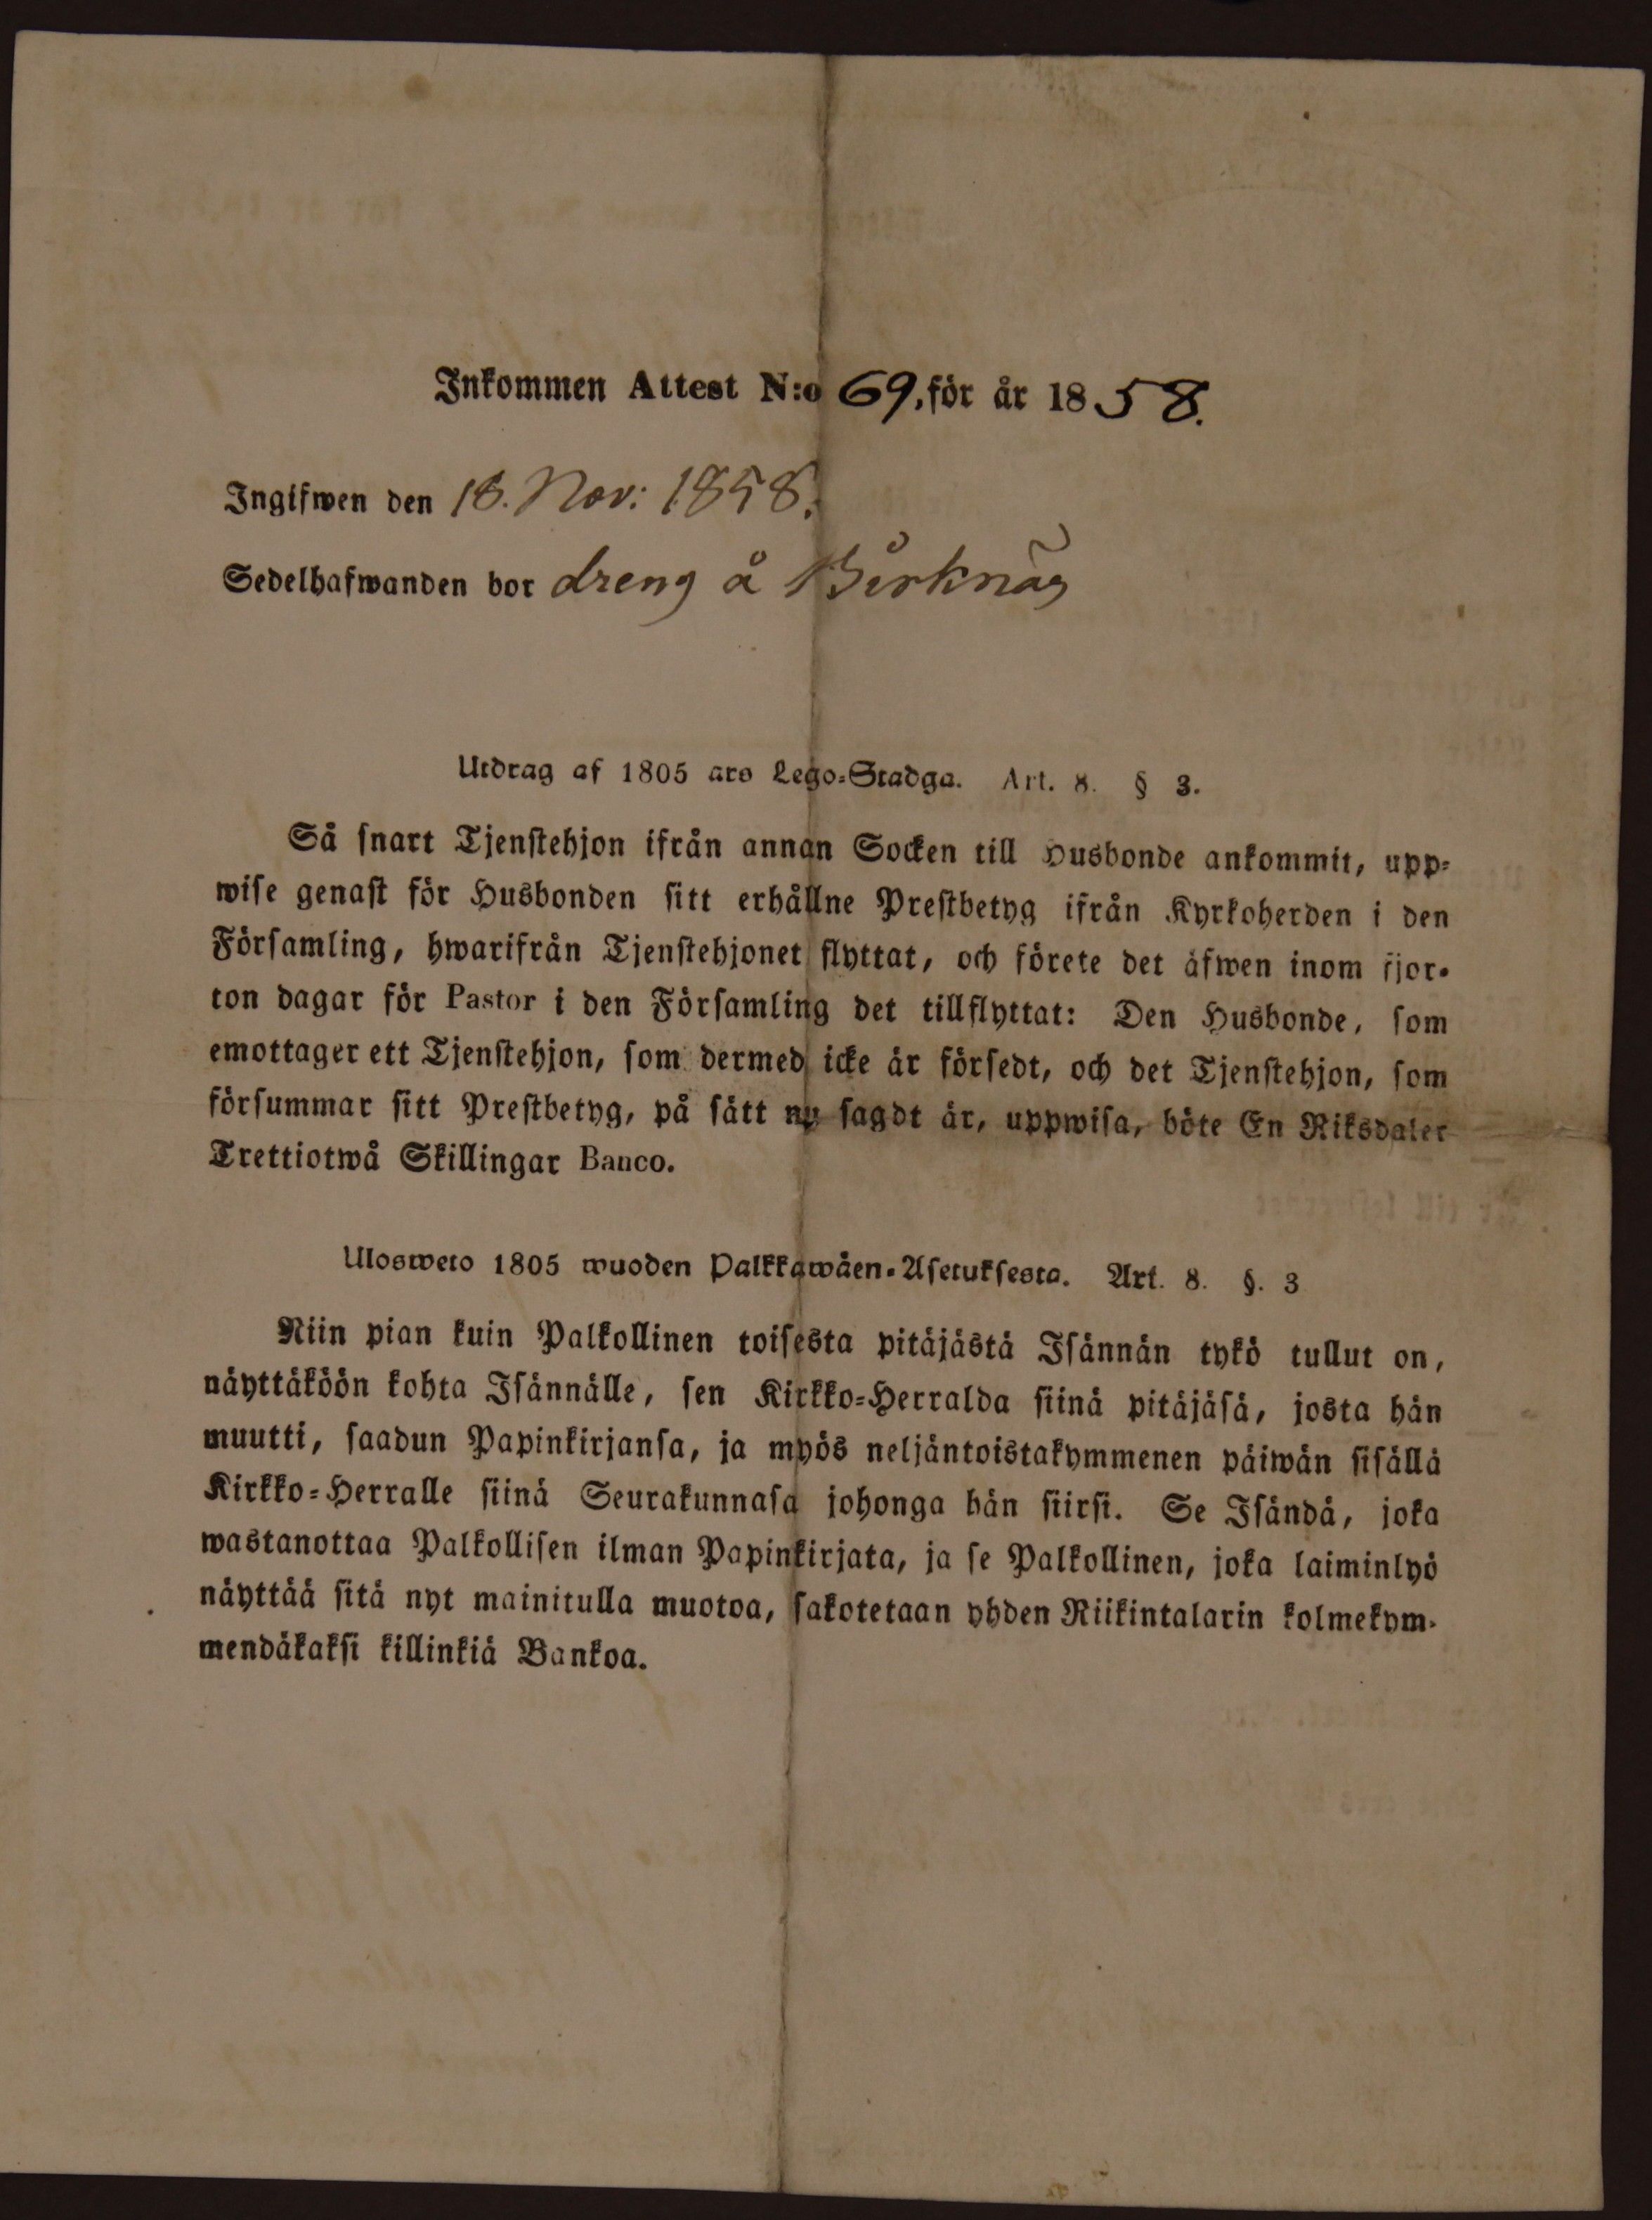 Inkommen Attest N:o 69, för år 1858.
Ingifwen den 18. Nov: 1858.
Sedelhafwanden bor dreng å Birknäs
Utdrag af 1805 års Lego-Stadga. Art. 8. § 3.
Så snart Tjenstehjon ifrån annan Socken till Husbonde ankommit, upp-
wise genast för Husbonden sitt erhållne Prestbetyg ifrån Kyrkoherden i den
Församling, hwarifrån Tjenstehjonet flyttat, och förete det äfwen inom fjor-
ton dagar för Pastor i den Församling det tillflyttat: Den Husbonde, som
emottager ett Tjenstehjon, som dermed icke är försedt, och det Tjenstehjon, som
försummar sitt Prestbetyg, på sätt nu sagdt är, uppwisa, böte En Riksdaler
Trettiotwå Skillingar Banco.
Ulosweto 1805 wuoden Palkkawäen-Asetuksesta. Art. 8. §. 3
Niin pian kuin Palkollinen toisesta pitäjästä Isännän tykö tullut on,
näyttäköön kohta Isännälle, sen Kirkko-Herralda siinä pitäjäsä, josta hän
muutti, saadun Papinkirjansa, ja myös neljäntoistakymmenen päiwän sisällä
Kirkko-Herralle siinä Seurakunnasa johonga hän siirsi. Se Isändä, joka
wastanottaa Palkollisen ilman Papinkirjata, ja se Palkollinen, joka laiminlyö
näyttää sitä nyt mainitulla muotoa, sakotetaan yhden Riikintalarin kolmekym-
mendäkaksi killinkiä Bankoa.